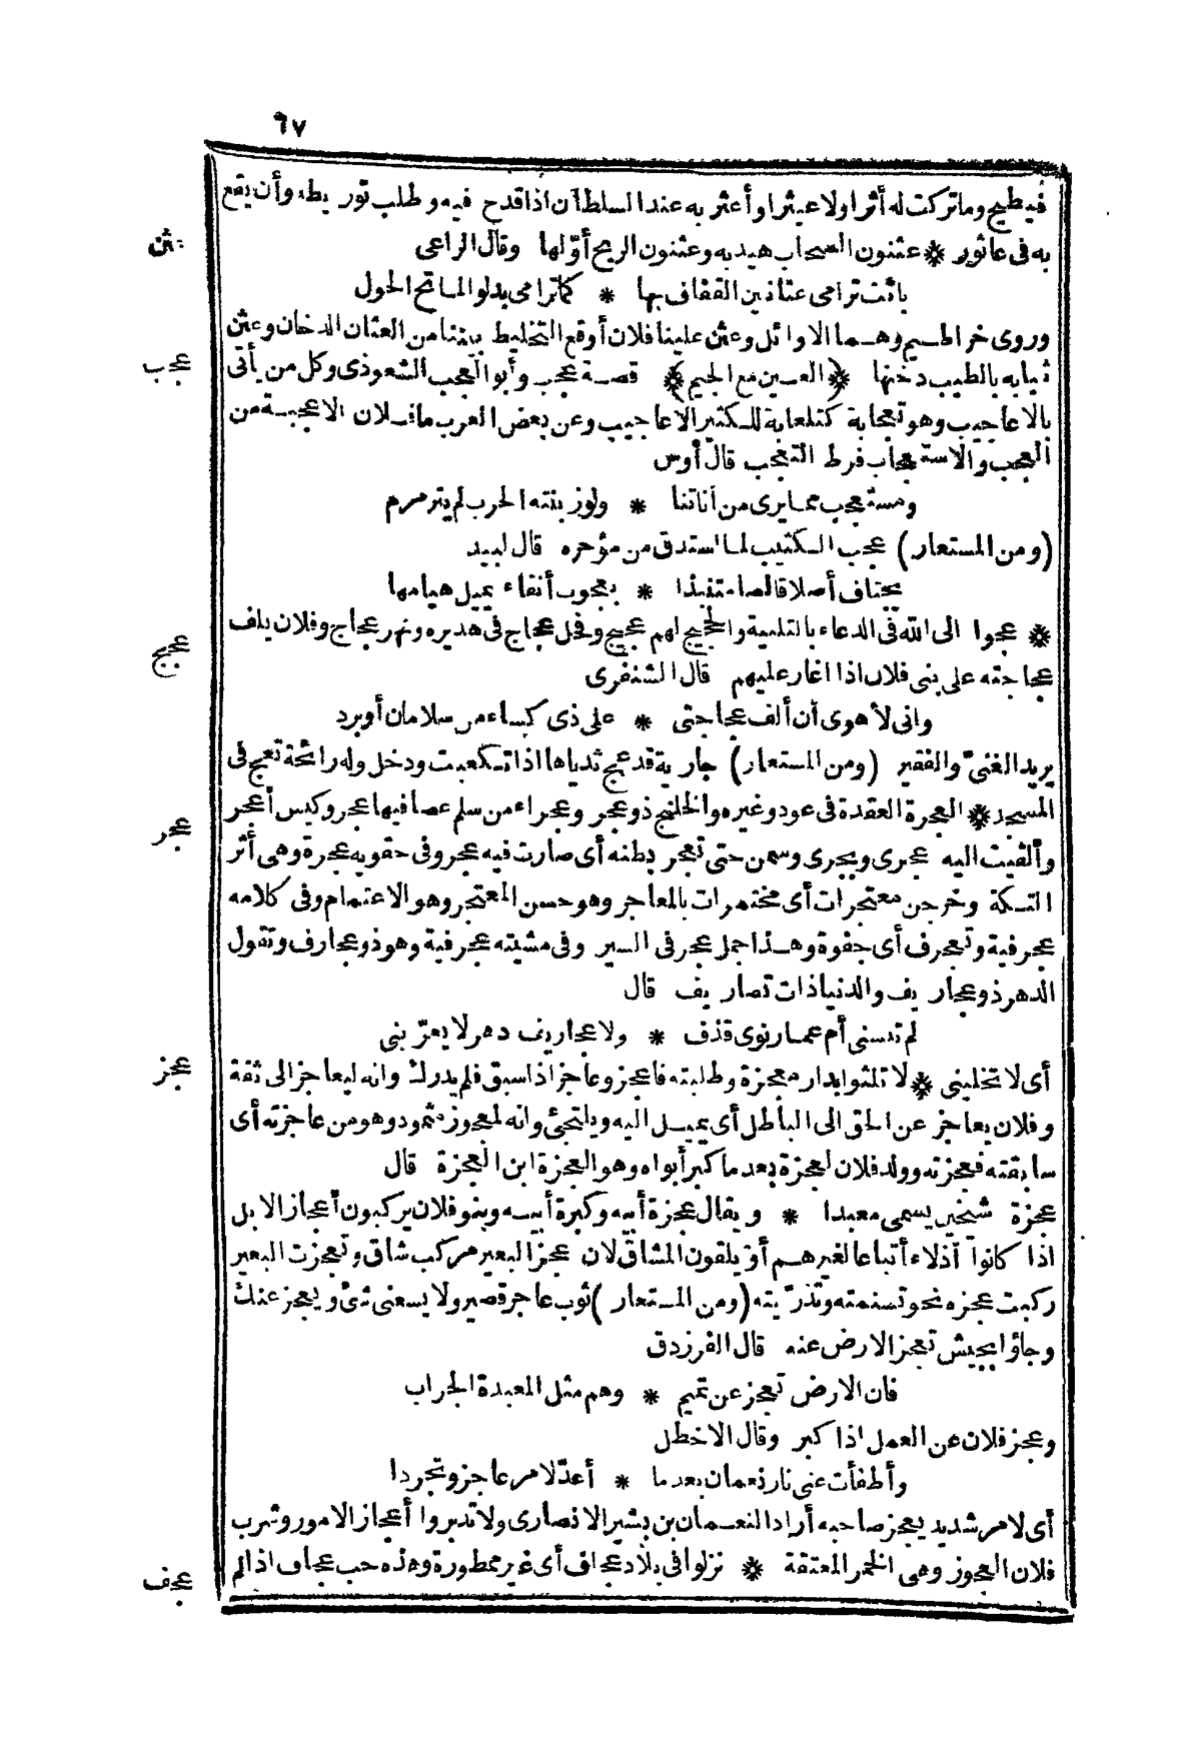 ٦٧
فيطيح وما تركت له أثرا ولا عيثرا وأعثر به عند السلطان اذا قدح فيه وطلب توريطه وأن يقع
عثن
به فى عاثور ❋ عثنون السحاب هيدبه وعثنون الريح أوّلها وقال الراعى
باتت ترامى عثانين القفاف بها * كما ترامى بدلو الماتح الحول
وروى خر المسيم وهما الاوائل وعثن علينا فلان أوقع التخليط بيننا من العثان الدخان وعثن
عجب
ثيابه بالطيب دخنها ❋ (العين مع الجيم) ❋ قصة عجب وأبو العجب الشعوذى وكل من يأتى
بالاعاجيب وهو تعجابة كتلعابة للكثير الاعاجيب وعن بعض العرب ما فلان الا عجبة من
العجب والاستعجاب فرط التعجب قال أوس
ومستعجب مما يرى من أناتنا * ولو زبنته الحرب لم يترمرم
(ومن المستعار) عجب الكثيب لما استدق من مؤخره قال لبيد
يجتاف أصلا قالصا متنبذا * بعجوب أنقاء يميل هيامها
عجج
❋ عجوا الى الله فى الدعاء بالتلبية والحجيج لهم عجيج وفحل عجاج فى هديره ونهر عجاج وفلان يلف
عجاجته على بنى فلان اذا اغار عليهم قال الشنفرى
وانى لأهوى أن ألف عجاجتى * على ذى كساء من سلامان أو برد
يريد الغنىّ والفقير (ومن المستعار) جارية قد عج ثدياها اذا تكعبت ودخل وله رائحة تعج فى
عجر
المسجد ❋ العجرة العقدة فى عود وغيره والخلنج ذو عجر وعجراء من سلم عصا فيها عجر وكيس أعجر
وألقيت اليه عجرى وبجرى وسمن حتى تعجر بطنه أى صارت فيه عجر وفى حقويه عجرة وهى أثر
التكة وخرجن معتجرات أى مختمرات بالمعاجر وهو حسن المعتجر وهو الاعتمام وفى كلامه
عجرفية وتعجرف أى جفوة وهذا جمل عجرفى السير وفى مشيته عجرفية وهو ذو عجارف وتقول
الدهر ذو عجاريف والدنيا ذات تصاريف قال
لم تنسنى أم عمار نوى قذف * ولا عجاريف دهر لا يعرّ بنى
عجز
أى لا تخلينى ❋ لا تلثوا بدار معجزة وطلبته فاعجز وعاجز اذا سبق فلم يدرك وانه ليعاجز الى ثقة
وفلان يعاجز عن الحق الى الباطل أى يميل اليه ويلتجئ وانه لمعجوز مثمود وهو من عاجزته أى
سابقته فعجزته وولد فلان لعجزة بعد ما كبر أبواه وهو العجزة ابن العجزة قال
عجزة شيخين يسمى معبدا * ويقال عجزة أبيه وكبرة أبيه وبنو فلان يركبون أعجاز الابل
اذا كانوا أذلاء أتباعا لغيرهم أو يلقون المشاق لان عجز البعير مركب شاق وتعجزت البعير
ركبت عجزه نحو تسنمته وتذرّيته (ومن المستعار) ثوب عاجز قصير ولا يسعنى شئ ويعجز عنك
وجاؤا بجيش تعجز الارض عنه قال الفرزدق
فان الارض تعجز عن تميم * وهم مثل المعبدة الجراب
وعجز فلان عن العمل اذا كبر وقال الاخطل
وأطفأت عنى نار نعمان بعد ما * أعدّ لامر عاجز وتجردا
أى لامر شديد يعجز صاحبه أراد النعمان بن بشير الانصارى ولا تدبروا أعجاز الامور وشرب
عجف
فلان العجوز وهى الخمر المعتقة ❋ نزلوا فى بلاد عجاف أى غير ممطورة وهذه حب عجاف اذا لم